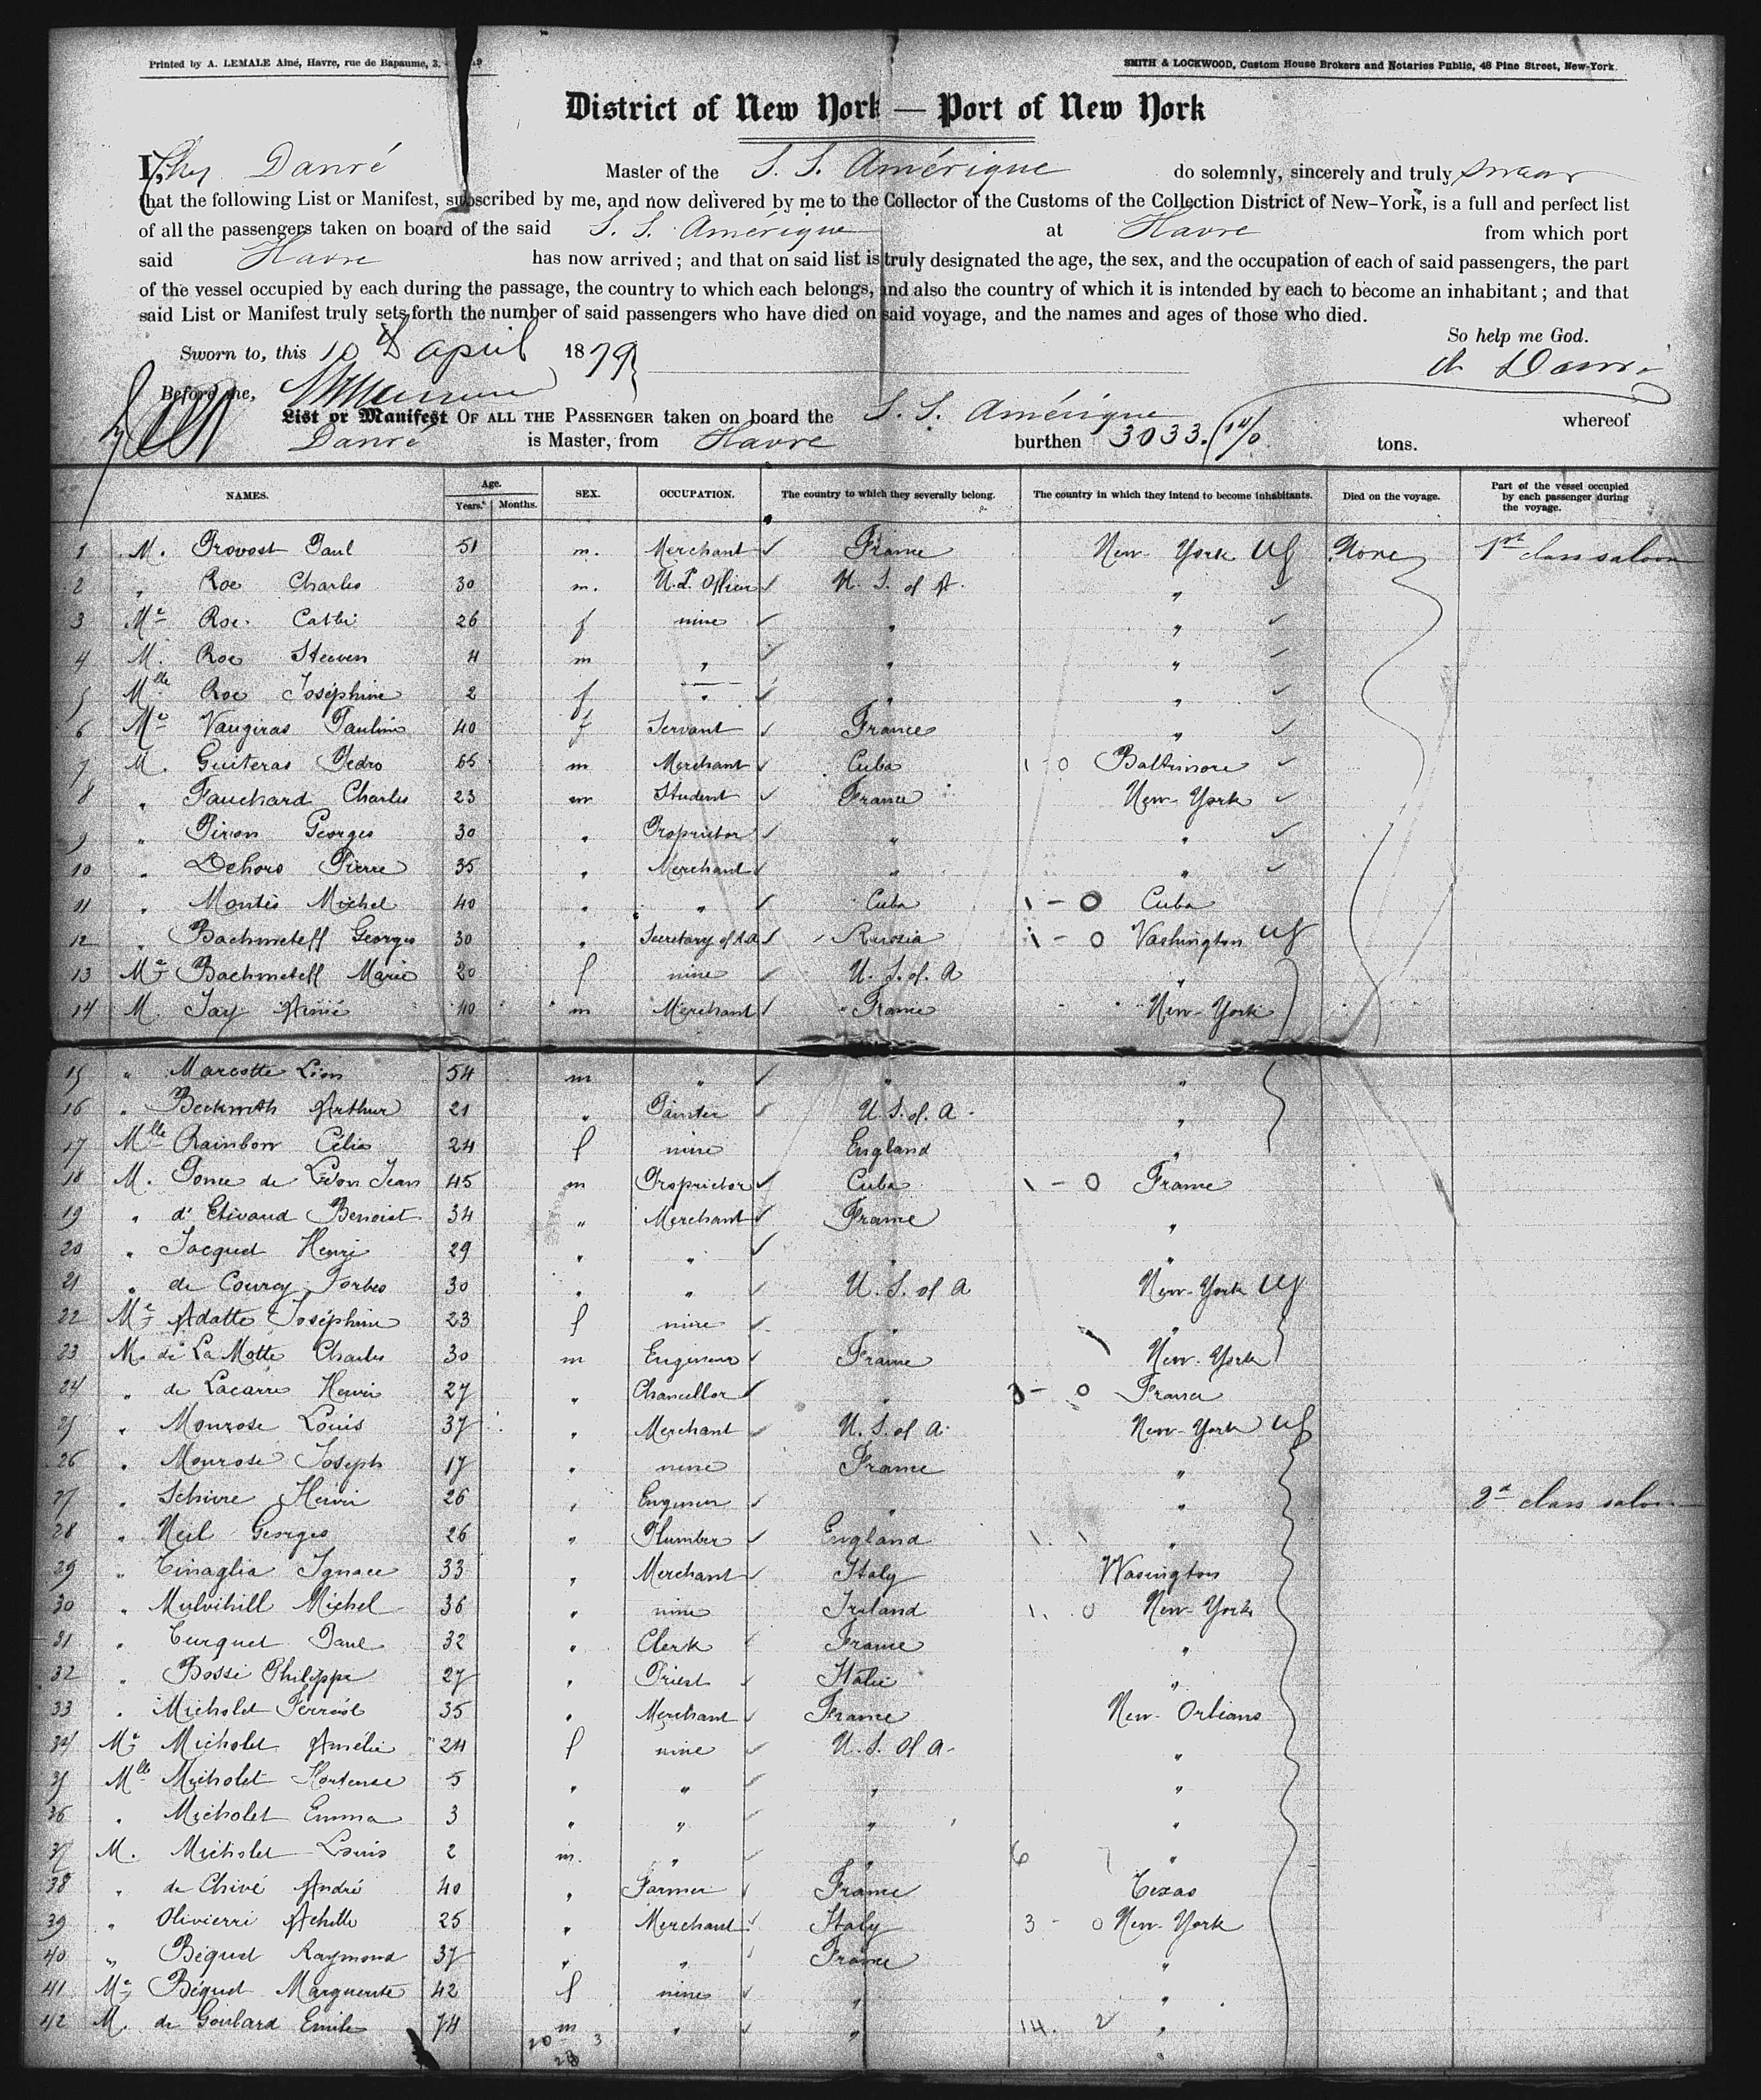 Printed by A. LEMALE Aîné, Havre, rue de Bapaume, 3.
SMITH & LOCKWOOD, Custom House Brokers and Notaries Public, 48 Pine Street, New-York.
District of New York — Port of New York
I, Danré Master of the S. S. Amérique do solemnly, sincerely and truly swear
that the following List or Manifest, subscribed by me, and now delivered by me to the Collector of the Customs of the Collection District of New-York, is a full and perfect list
of all the passengers taken on board of the said S. S. Amérique at Havre from which port
said Havre has now arrived; and that on said list is truly designated the age, the sex, and the occupation of each of said passengers, the part
of the vessel occupied by each during the passage, the country to which each belongs, and also the country of which it is intended by each to become an inhabitant; and that
said List or Manifest truly sets forth the number of said passengers who have died on said voyage, and the names and ages of those who died.
So help me God.
Sworn to, this 10 April 1879
Danré
Before me,
List or Manifest OF ALL THE PASSENGER taken on board the S. S. Amérique whereof
Danré is Master, from Havre burthen 3033. tons.
NAMES. Age. Years. Months. SEX. OCCUPATION. The country to which they severally belong. The country in which they intend to become inhabitants. Died on the voyage. Part of the vessel occupied by each passenger during the voyage.
1 M. Provost Paul 51 m. Merchant France New-York US None 1st class saloon
2 " Roe Charles 30 m. U.S. Officer U. S. of A. "
3 Me Roe 26 f nine " "
4 M. Roe Steeven 4 m " " "
5 Mlle Roe Joséphine 2 f " " "
6 Me Vaugiras Pauline 40 f Servant France "
7 M. Guiteras Pedro 65 m Merchant Cuba 1-0 Baltimore
8 " Fauchard Charles 23 m Student France New-York
9 " Piron Georges 30 " Proprietor " "
10 " Dehors Pierre 35 " Merchant " "
11 " Montès Michel 40 " " Cuba 1-0 Cuba
12 " Bachmeteff Georges 30 " Secretary of Russia 1-0 Vashington US
13 Me Bachmeteff Marie 20 f nine U. S. of. A "
14 M. Jay Aimé 40 m Merchant France New-York
15 " Marcotte Léon 54 m " " "
16 " Beckwith Arthur 21 " Painter U. S. of. A. "
17 Mlle Rainbow Célia 24 f nine England "
18 M. Ponce de Léon Jean 45 m Proprietor Cuba 1-0 France
19 " d'Etivaud Benoist 34 " Merchant France "
20 " Jacquet Henri 29 " " " "
21 " de Courcy Forbes 30 " " U. S. of A New-York US
22 Me Adatte Joséphine 23 f nine " "
23 M. de La Motte Charles 30 m Engineer France New-York
24 " de Lacarre Henri 27 " Chancellor " 3-0 France
25 " Monrose Louis 37 " Merchant U. S. of A. New-York US
26 " Monrose Joseph 17 " nine France "
27 " Schirre Henri 26 " Engineer " " 2d class saloon
28 " Neil Georges 26 " Plumber England 1. 1 "
29 " Tinaglia Ignace 33 " Merchant Italy Wasington
30 " Mulvihill Michel 36 " nine Ireland 1. 0 New-York
31 " Turquet Paul 32 " Clerk France "
32 " Bossi Philippe 27 " Priest Italie "
33 " Micholet 35 " Merchant France New-Orleans
34 Me Micholet Amélie 24 f nine U. S. of A. "
35 Mlle Micholet Hortense 5 " " " "
36 " Micholet Emma 3 " " " "
37 M. Micholet Louis 2 m. " " 6 "
38 " de Chivé André 40 " Farmer France Texas
39 " Olivierri Achille 25 " Merchant Italy 3-0 New-York
40 " Béquet Raymond 37 " " France "
41 Me Béquet Marguerite 42 f nine " "
42 M. de Goulard Emile 74 m " " 14. 2 "
20 3
28